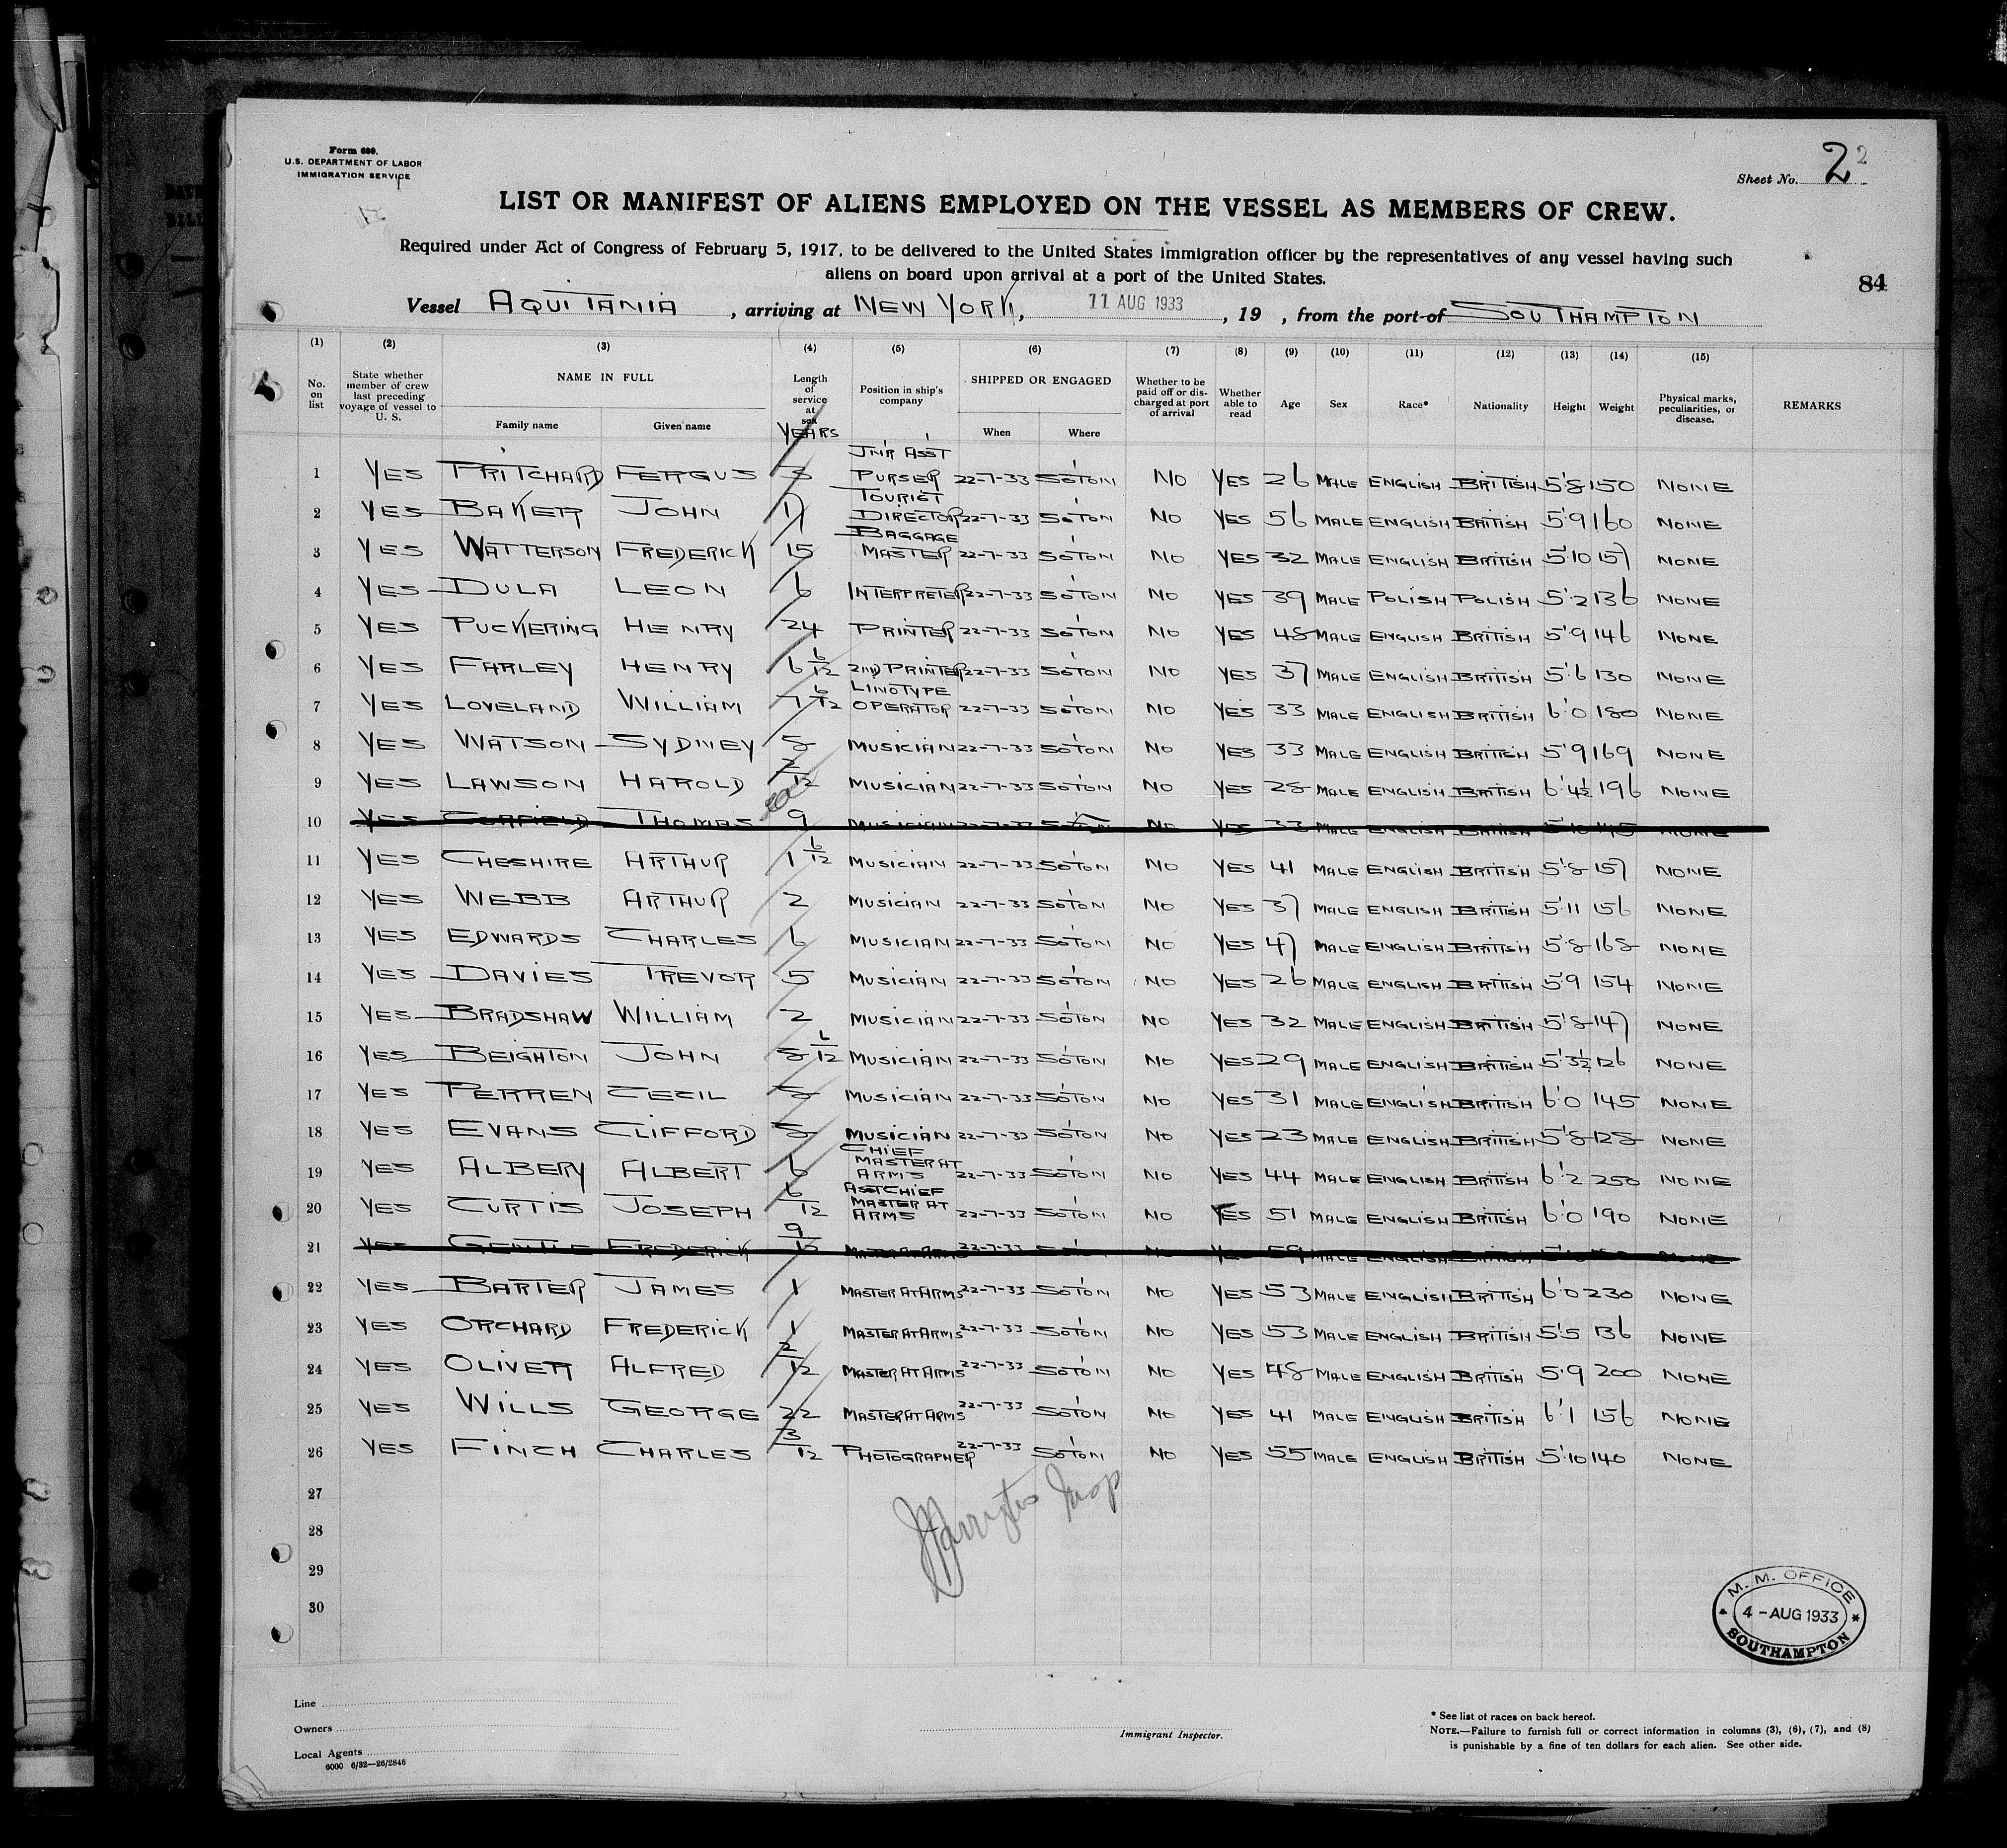 Form 680.
U.S. DEPARTMENT OF LABOR
IMMIGRATION SERVICE
Sheet No. 2 2
LIST OR MANIFEST OF ALIENS EMPLOYED ON THE VESSEL AS MEMBERS OF CREW.
Required under Act of Congress of February 5, 1917, to be delivered to the United States immigration officer by the representatives of any vessel having such
aliens on board upon arrival at a port of the United States.
84
Vessel AQUITANIA, arriving at NEW YORK, 11 AUG 1933, 19 , from the port of SOUTHAMPTON
(1) (2) (3) (4) (5) (6) (7) (8) (9) (10) (11) (12) (13) (14) (15)
No. on list State whether member of crew last preceding voyage of vessel to U. S. NAME IN FULL Family name Given name Length of service at sea YEARS Position in ship's company SHIPPED OR ENGAGED When Where Whether to be paid off or discharged at port of arrival Whether able to read Age Sex Race* Nationality Height Weight Physical marks, peculiarities, or disease. REMARKS
1 YES PRITCHARD FERGUS JNR ASST PURSER 22-7-33 SO'TON NO YES 26 MALE ENGLISH BRITISH 5'8 150 NONE
2 YES BAKER JOHN 17 TOURIST DIRECTOR 22-7-33 SO'TON NO YES 56 MALE ENGLISH BRITISH 5'9 160 NONE
3 YES WATTERSON FREDERICK 15 BAGGAGE MASTER 22-7-33 SO'TON NO YES 32 MALE ENGLISH BRITISH 5'10 157 NONE
4 YES DULA LEON 6 INTERPRETER 22-7-33 SO'TON NO YES 39 MALE POLISH POLISH 5'2 136 NONE
5 YES PUCKERING HENRY 24 PRINTER 22-7-33 SO'TON NO YES 48 MALE ENGLISH BRITISH 5'9 146 NONE
6 YES FARLEY HENRY 6 6/12 2ND PRINTER 22-7-33 SO'TON NO YES 37 MALE ENGLISH BRITISH 5'6 130 NONE
7 YES LOVELAND WILLIAM 7 6/12 LINOTYPE OPERATOR 22-7-33 SO'TON NO YES 33 MALE ENGLISH BRITISH 6'0 180 NONE
8 YES WATSON SYDNEY 8 MUSICIAN 22-7-33 SO'TON NO YES 33 MALE ENGLISH BRITISH 5'9 169 NONE
9 YES LAWSON HAROLD 2/12 MUSICIAN 22-7-33 SO'TON NO YES 28 MALE ENGLISH BRITISH 6'4½ 196 NONE
10 YES CORFIELD THOMAS 9 MUSICIAN 22-7-33 SO'TON NO YES 33 MALE ENGLISH BRITISH 5'10 145 NONE
11 YES CHESHIRE ARTHUR 1 6/12 MUSICIAN 22-7-33 SO'TON NO YES 41 MALE ENGLISH BRITISH 5'8 157 NONE
12 YES WEBB ARTHUR 2 MUSICIAN 22-7-33 SO'TON NO YES 37 MALE ENGLISH BRITISH 5'11 156 NONE
13 YES EDWARDS CHARLES 6 MUSICIAN 22-7-33 SO'TON NO YES 47 MALE ENGLISH BRITISH 5'8 168 NONE
14 YES DAVIES TREVOR 5 MUSICIAN 22-7-33 SO'TON NO YES 26 MALE ENGLISH BRITISH 5'9 154 NONE
15 YES BRADSHAW WILLIAM 2 MUSICIAN 22-7-33 SO'TON NO YES 32 MALE ENGLISH BRITISH 5'8 147 NONE
16 YES BEIGHTON JOHN 8 6/12 MUSICIAN 22-7-33 SO'TON NO YES 29 MALE ENGLISH BRITISH 5'3½ 126 NONE
17 YES PERREN CECIL 8 MUSICIAN 22-7-33 SO'TON NO YES 31 MALE ENGLISH BRITISH 6'0 145 NONE
18 YES EVANS CLIFFORD 8 MUSICIAN 22-7-33 SO'TON NO YES 23 MALE ENGLISH BRITISH 5'8 128 NONE
19 YES ALBERY ALBERT 6 CHIEF MASTER AT ARMS 22-7-33 SO'TON NO YES 44 MALE ENGLISH BRITISH 6'2 250 NONE
20 YES CURTIS JOSEPH 6/12 ASST CHIEF MASTER AT ARMS 22-7-33 SO'TON NO YES 51 MALE ENGLISH BRITISH 6'0 190 NONE
21 YES GENTLE FREDERICK 9/12 MASTER AT ARMS 22-7-33 NO YES 59 MALE ENGLISH BRITISH NONE
22 YES BARTER JAMES 1 MASTER AT ARMS 22-7-33 SO'TON NO YES 53 MALE ENGLISH BRITISH 6'0 230 NONE
23 YES ORCHARD FREDERICK 1 MASTER AT ARMS 22-7-33 SO'TON NO YES 53 MALE ENGLISH BRITISH 5'5 136 NONE
24 YES OLIVER ALFRED 2/12 MASTER AT ARMS 22-7-33 SO'TON NO YES 48 MALE ENGLISH BRITISH 5'9 200 NONE
25 YES WILLS GEORGE 22 MASTER AT ARMS 22-7-33 SO'TON NO YES 41 MALE ENGLISH BRITISH 6'1 156 NONE
26 YES FINCH CHARLES 3/12 PHOTOGRAPHER 22-7-33 SO'TON NO YES 55 MALE ENGLISH BRITISH 5'10 140 NONE
27
28
29
30
M. M. OFFICE
4 - AUG 1933
SOUTHAMPTON
Line
Owners
Local Agents
6000 6/32—26/2846
Immigrant Inspector.
* See list of races on back hereof.
NOTE.—Failure to furnish full or correct information in columns (3), (6), (7), and (8)
is punishable by a fine of ten dollars for each alien. See other side.